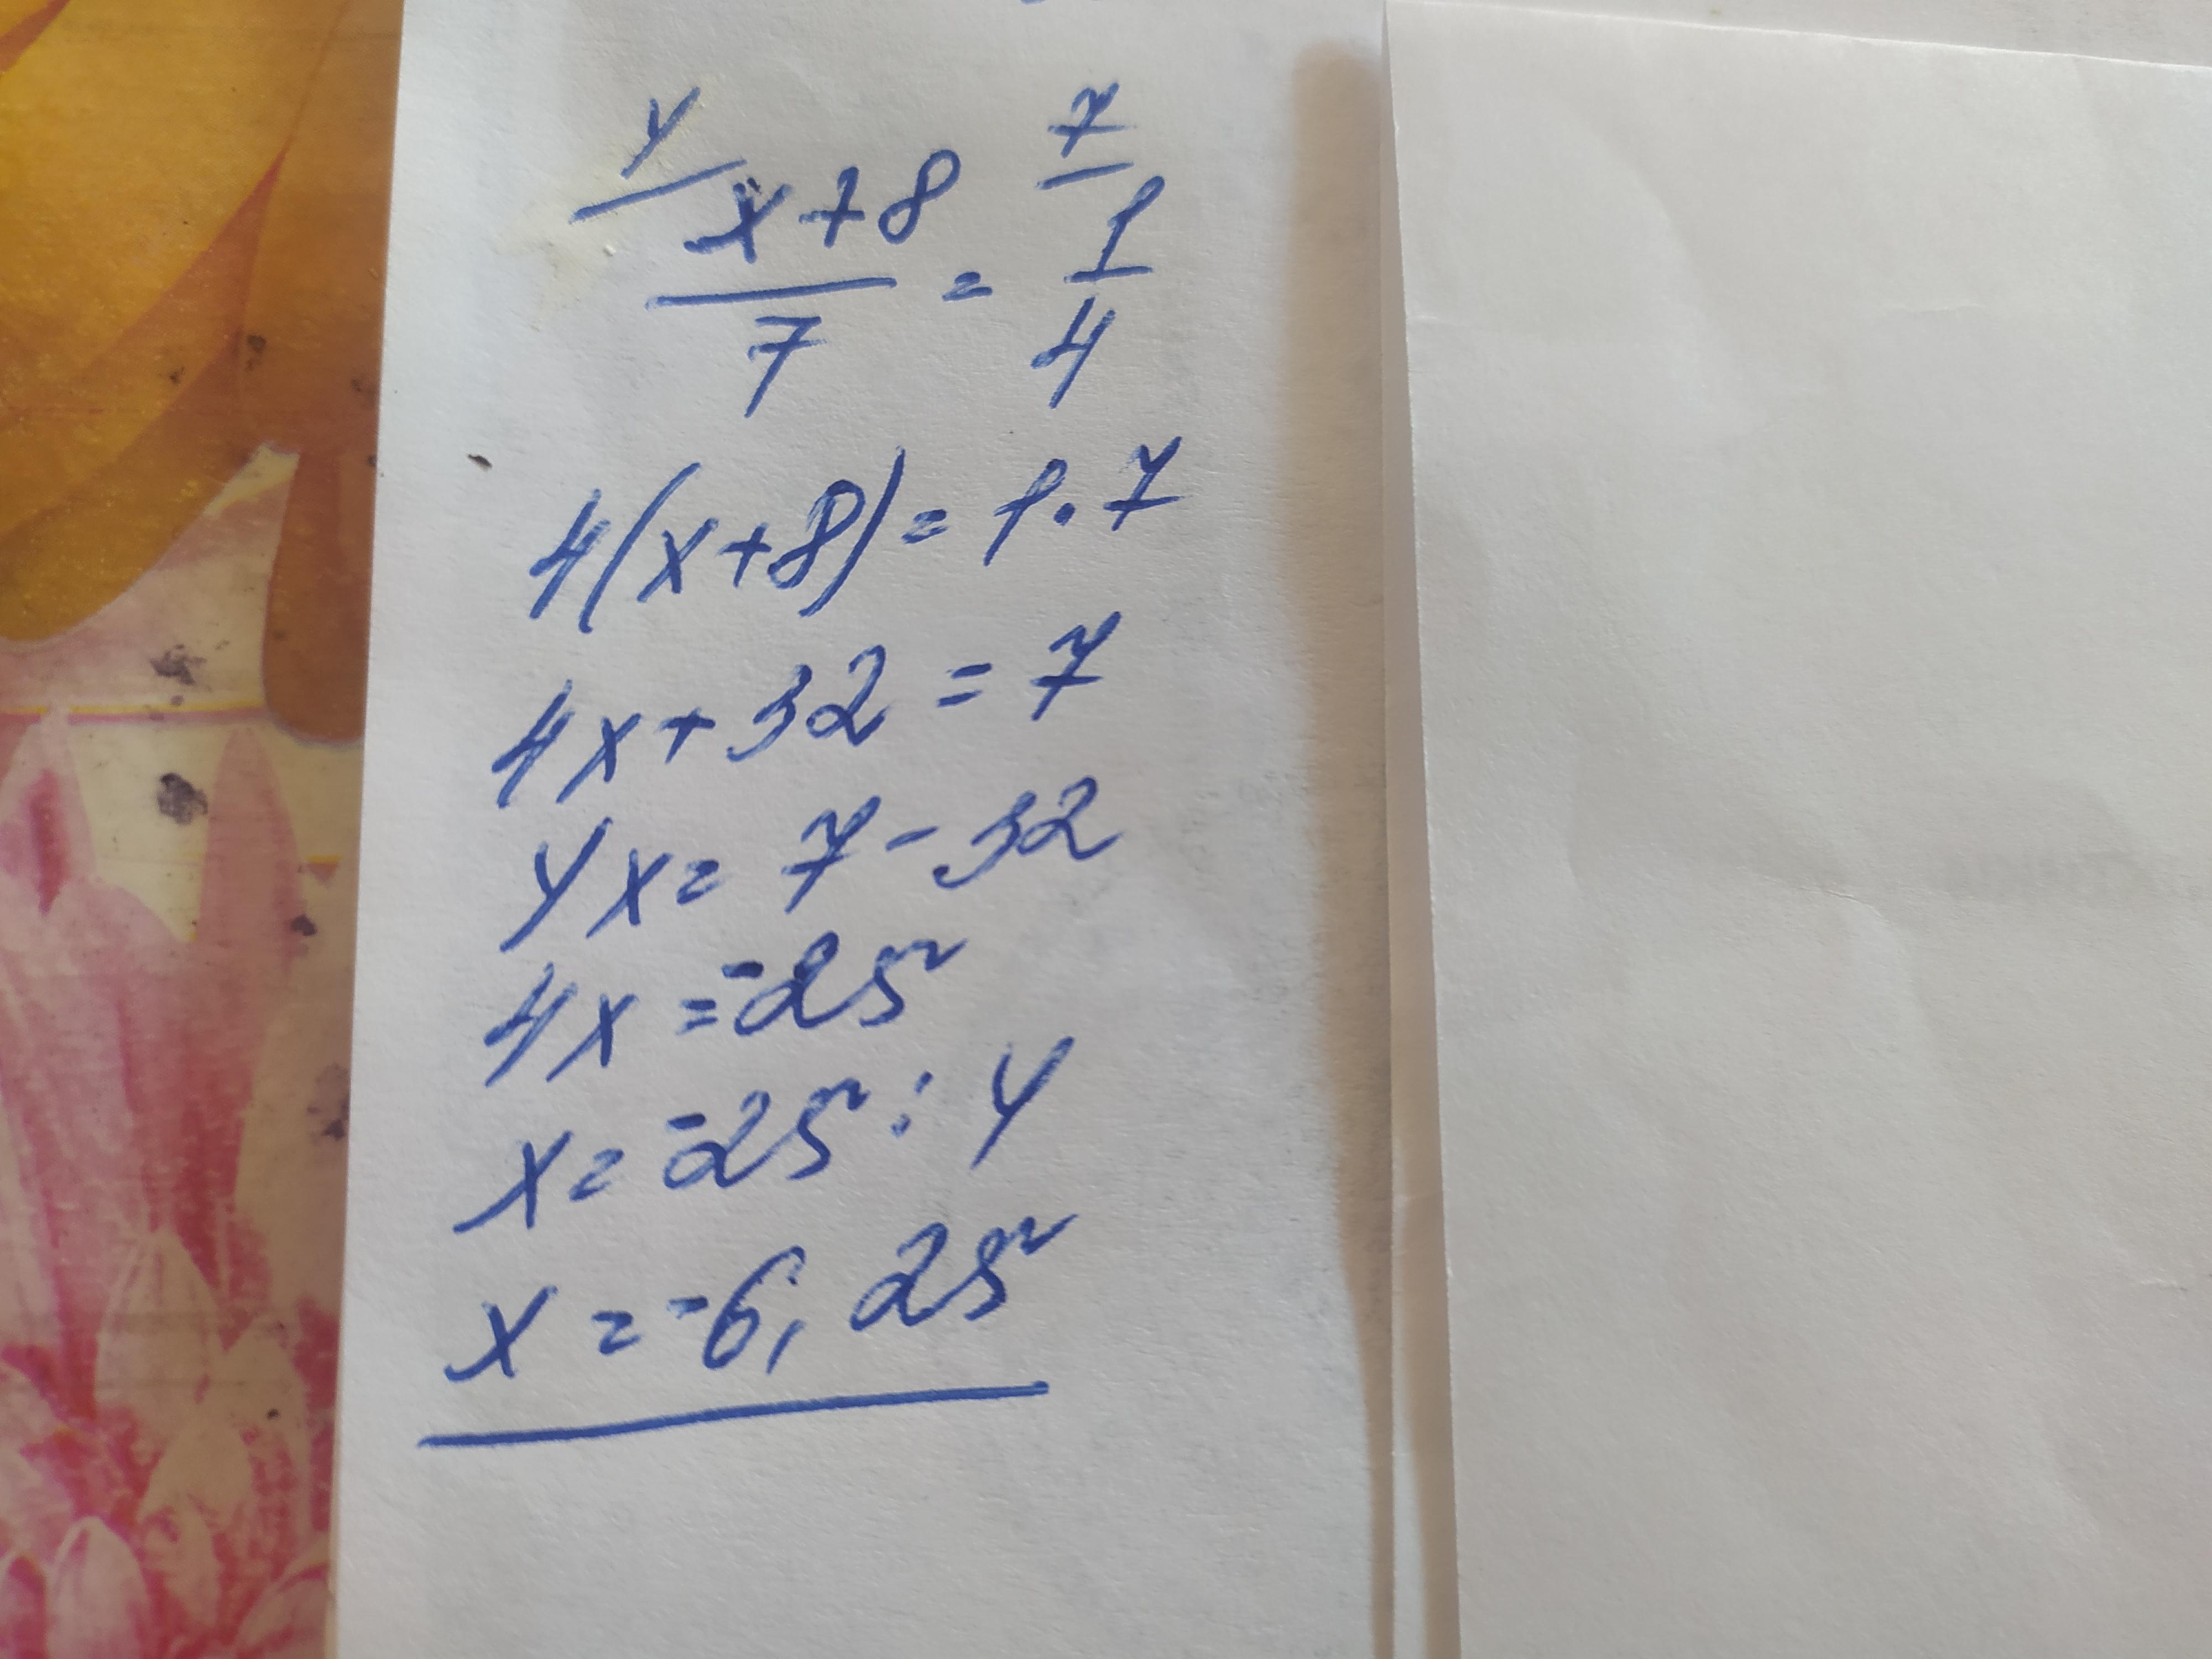 4 7
x+8 = 1
7 4
4(x+8)=1·7
4x+32=7
4x=7-32
4x=-25
x=-25:4
x=-6,25